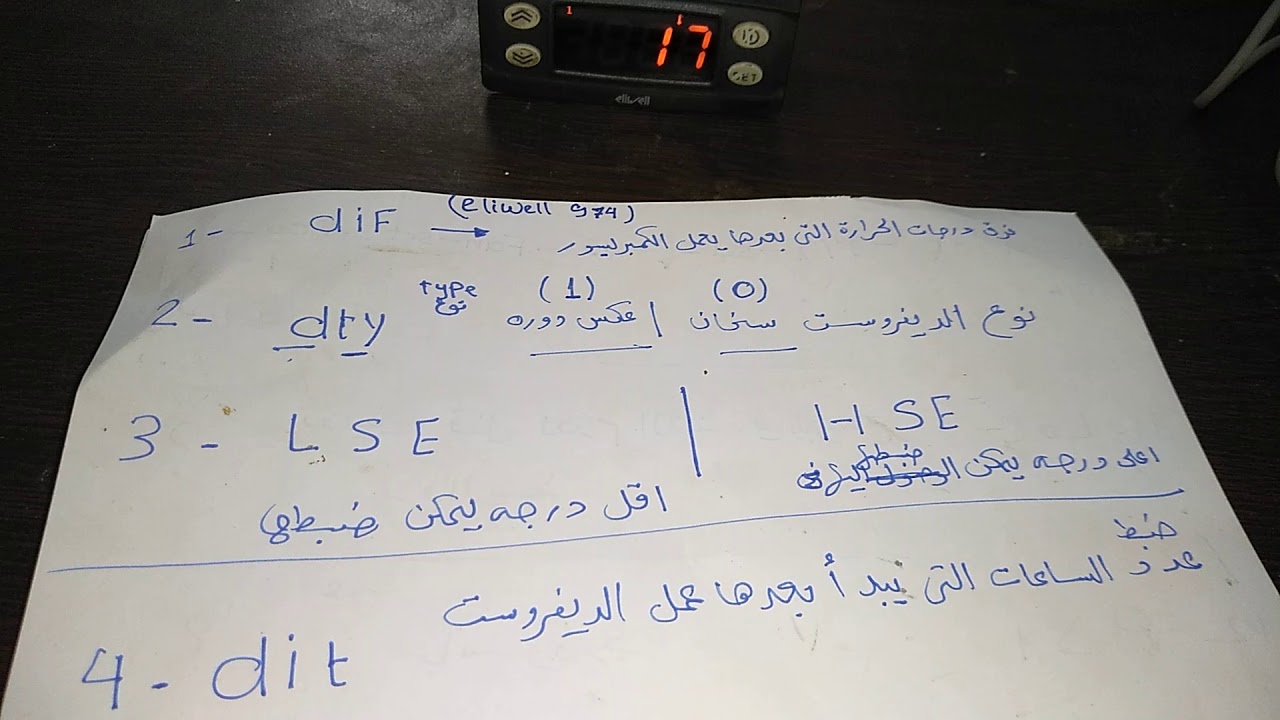 17
SET
eliwell
1- diF → (eliwell 974) فرق درجات الحرارة التى بعدها يعمل الكمبريسور
2- dty type نوع (1) (0)
نوع الديفروست سخان | عكس دوره
3 - LSE | HSE
اقل درجه يمكن ضبطها
اعلى درجه يمكن ضبطها
ضبط
عدد الساعات التى يبدأ بعدها عمل الديفروست
4 - dit